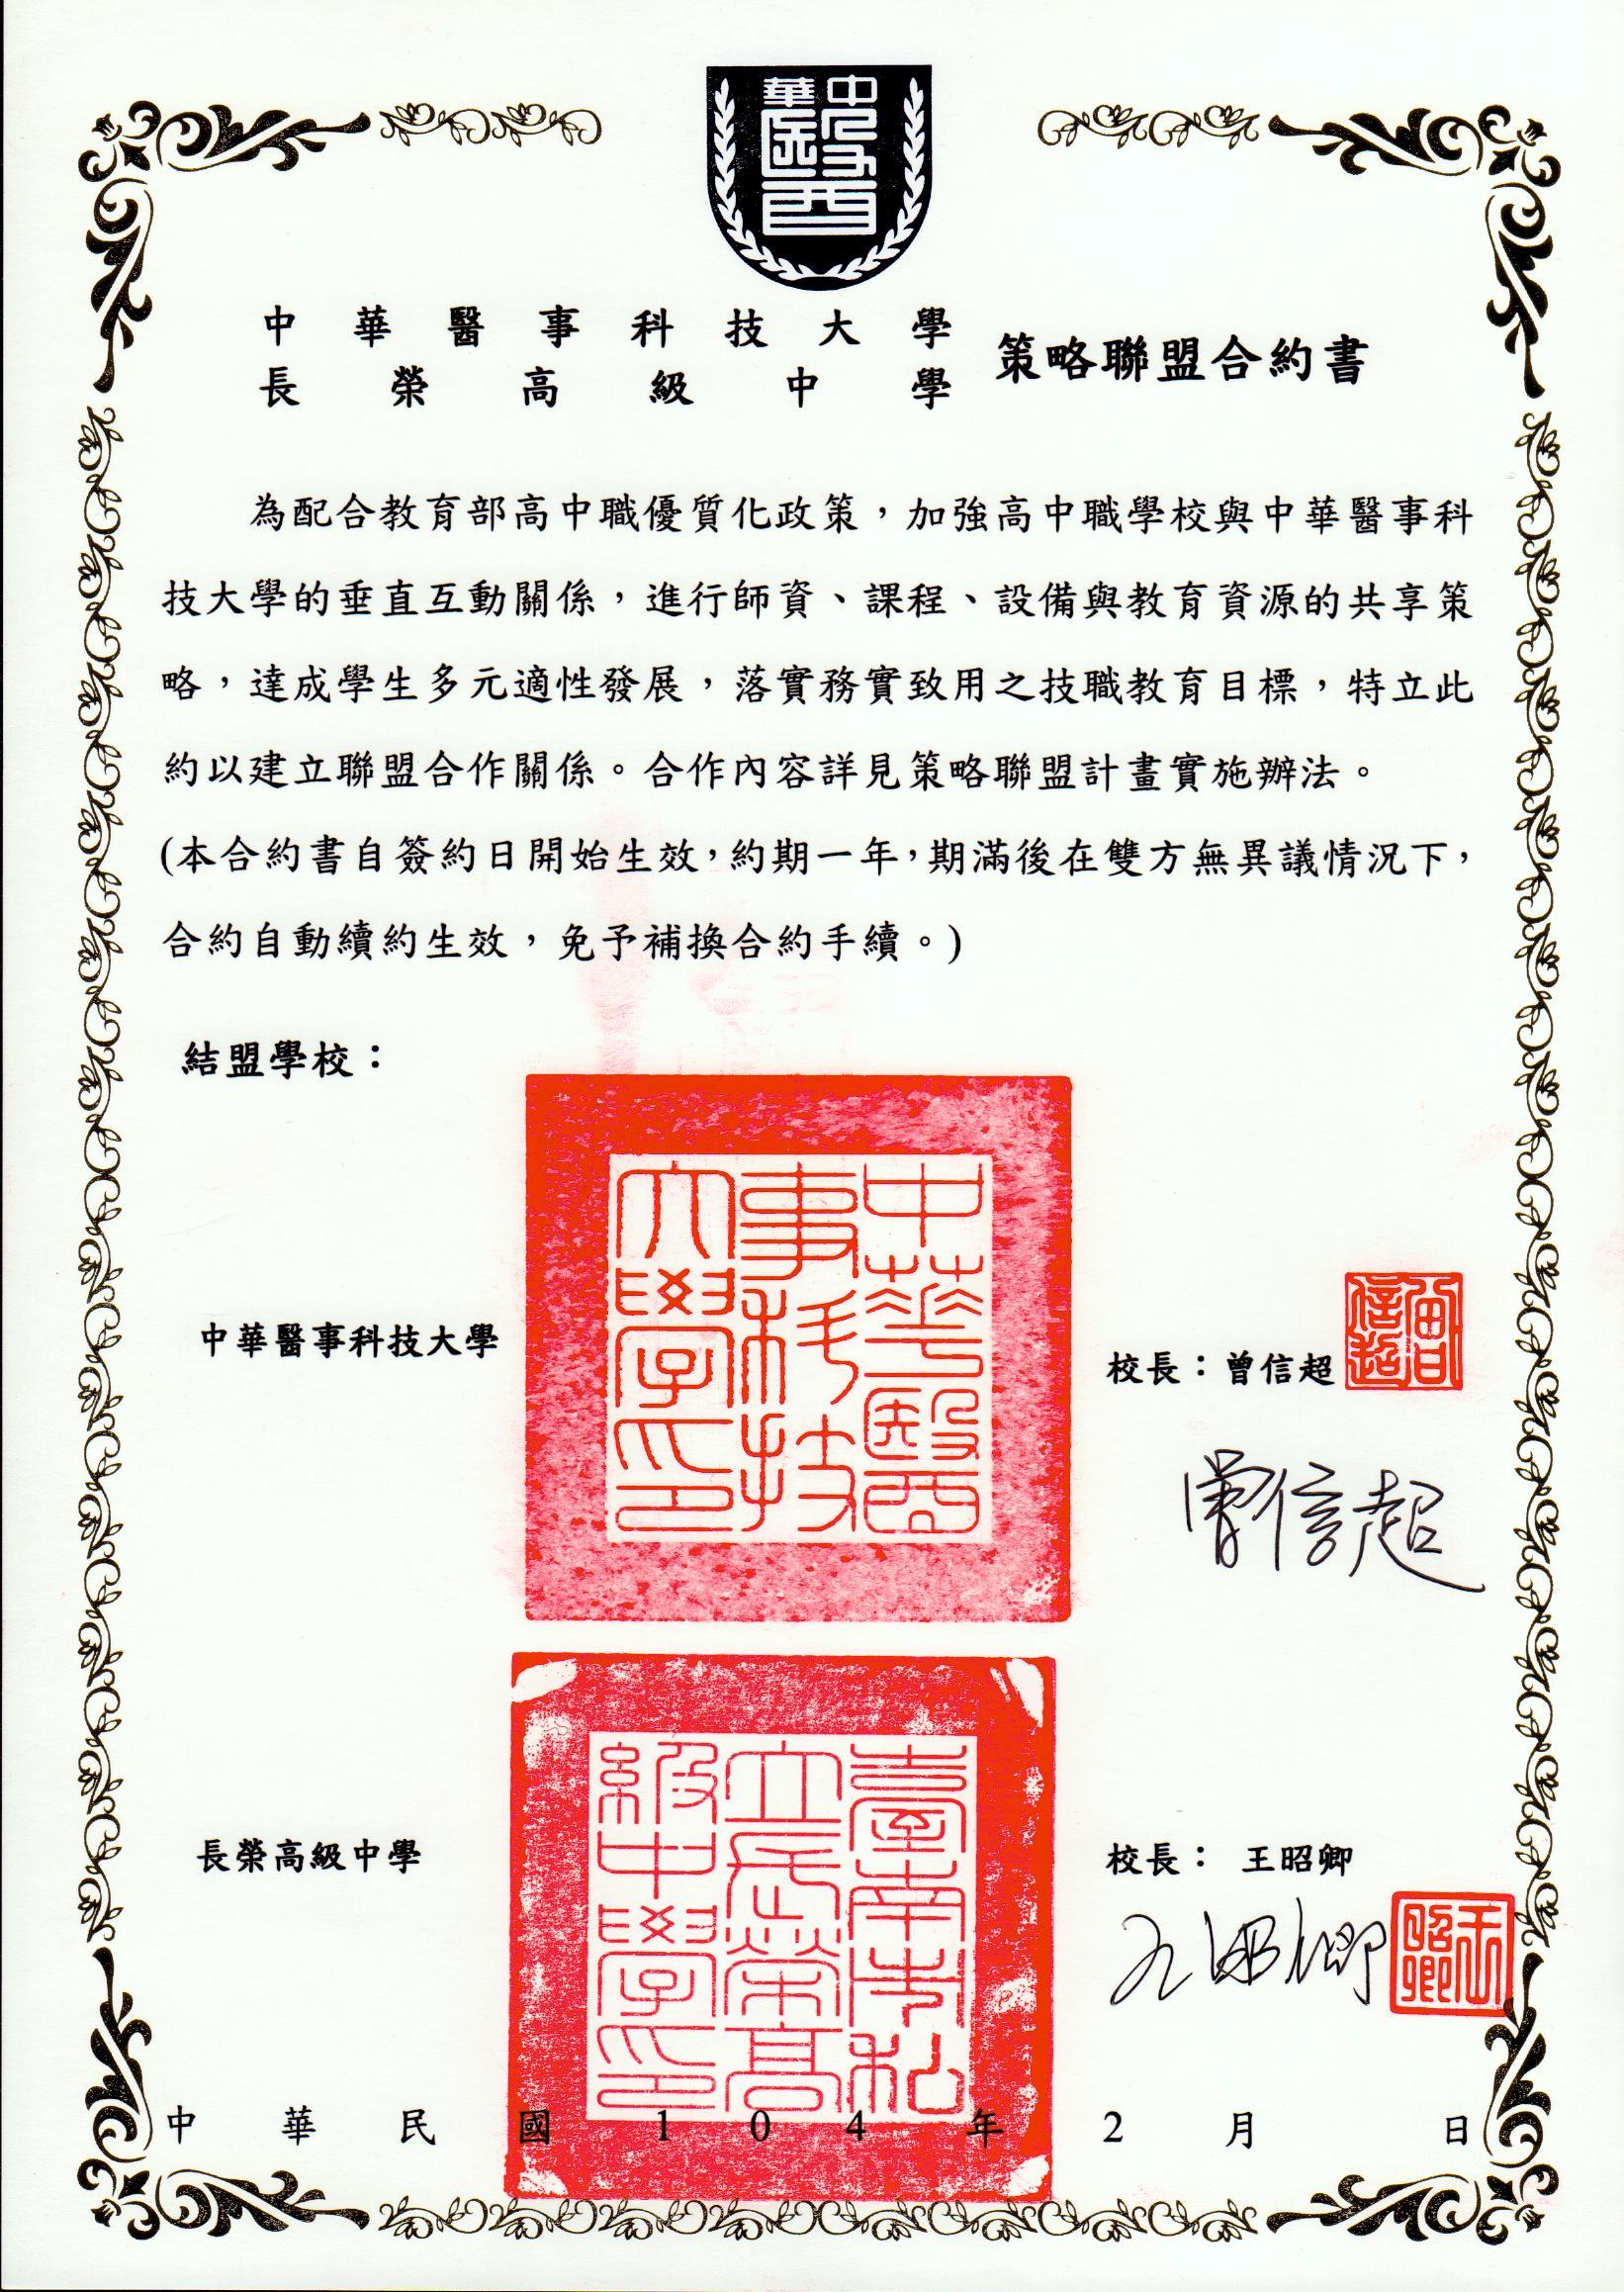 中華醫
中華醫事科技大學
長榮高級中學
策略聯盟合約書
為配合教育部高中職優質化政策，加強高中職學校與中華醫事科
技大學的垂直互動關係，進行師資、課程、設備與教育資源的共享策
略，達成學生多元適性發展，落實務實致用之技職教育目標，特立此
約以建立聯盟合作關係。合作內容詳見策略聯盟計畫實施辦法。
(本合約書自簽約日開始生效，約期一年，期滿後在雙方無異議情況下，
合約自動續約生效，免予補換合約手續。)
結盟學校：
中華醫事科技大學
中華醫事科技大學印
校長：曾信超
曾信超
曾信超
長榮高級中學
臺南市私立長榮高級中學印
校長： 王昭卿
王昭卿
王昭卿
中華民國104年2月 日